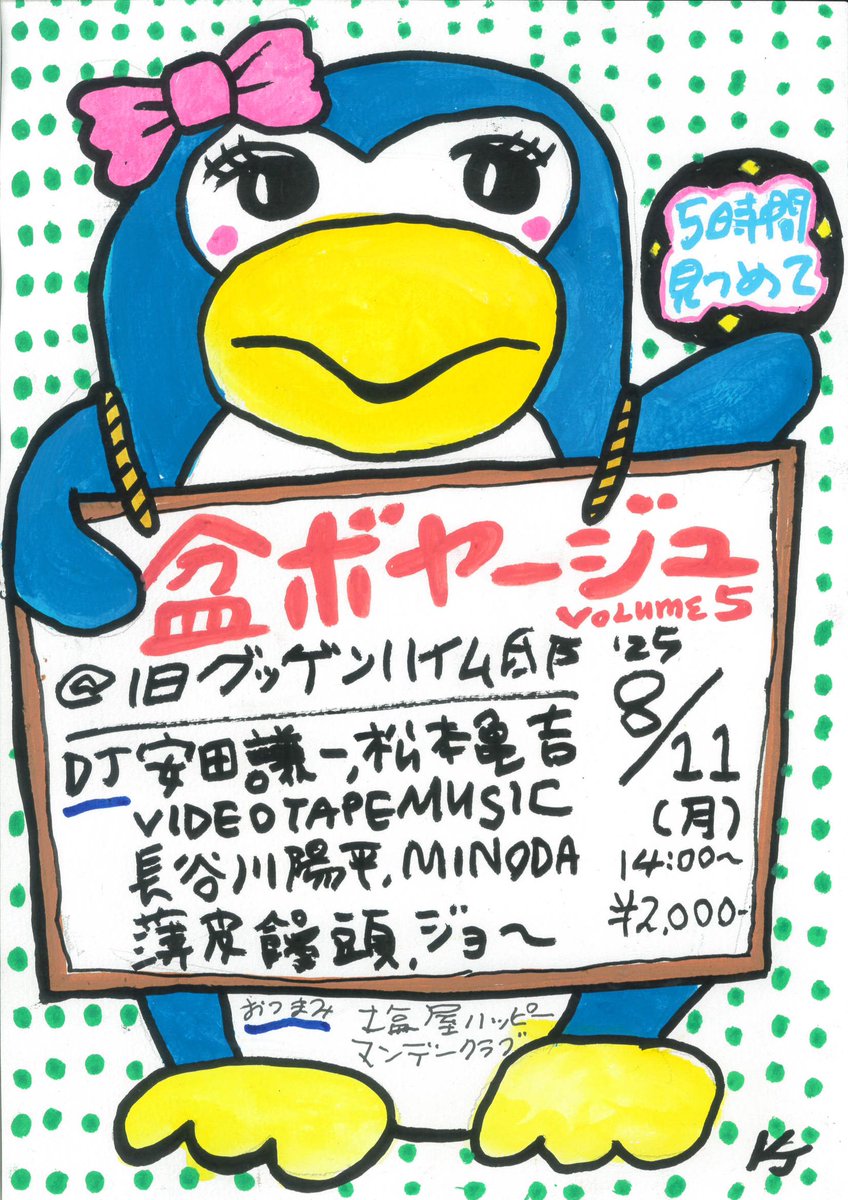 5時間
見つめて
盆ボヤージュ
VOLUME 5
@旧グッゲンハイム邸
'25
8/11
(月)
14:00~
¥2,000-
DJ 安田謙一,松本亀吉
VIDEOTAPEMUSIC
長谷川陽平,MINODA
薄皮饅頭,ジョ〜
おつまみ 塩屋ハッピー
マンデークラブ
KJ